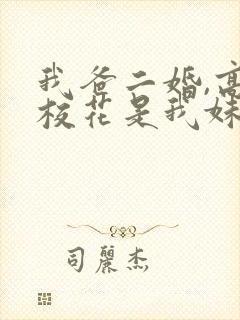 我爸二婚,高
校花是我妹
司丽杰